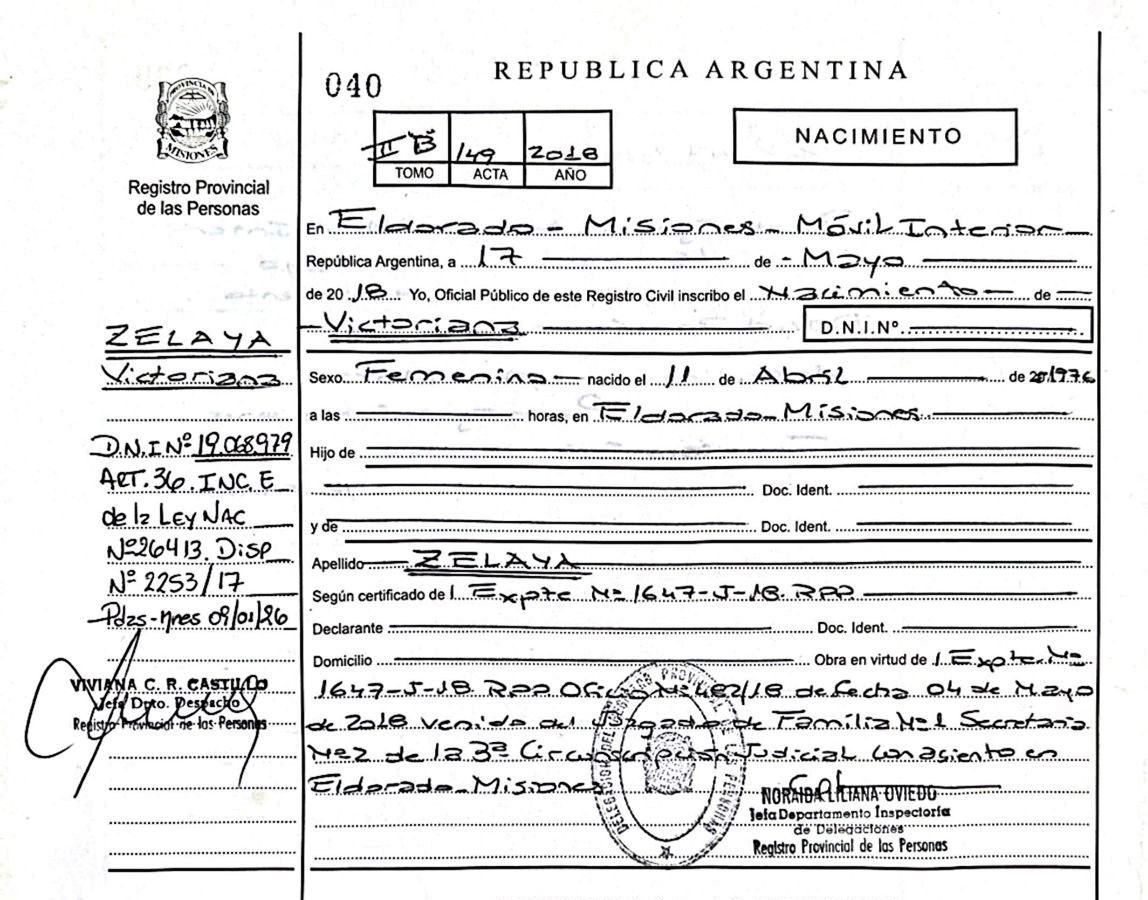 040
REPUBLICA ARGENTINA
II "B" 149 2018
TOMO ACTA AÑO
NACIMIENTO
PROVINCIA
MISIONES
Registro Provincial
de las Personas
ZELAYA
Victoriana
D.N.I Nº 19.068.979
ART. 36. INC. E
de la LEY NAC
Nº 26413. DISP
Nº 2253/17
Pdas-Mnes 09/01/26
VIVIANA C. R. CASTILLO
Jefa Dpto. Despacho
Registro Provincial de las Personas
En Eldorado - Misiones - Móvil Interior
República Argentina, a 17 de - Mayo
de 20 18 Yo, Oficial Público de este Registro Civil inscribo el Nacimiento de
Victoriana D.N.I.Nº
Sexo Femenino nacido el 11 de Abril de 1976
a las horas, en Eldorado - Misiones
Hijo de
Doc. Ident.
y de Doc. Ident.
Apellido ZELAYA
Según certificado de Expte Nº 1647-J-18. RPP
Declarante Doc. Ident.
Domicilio Obra en virtud de Expte. Nº
1647-J-18. RPP Oficio Nº 482/18 de fecha 04 de Mayo
de 2018 venido del Juzgado de Familia Nº 1 Secretaria
Nº 2 de la 3ª Circunscripción Judicial con asiento en
Eldorado - Misiones
NORAIDA LILIANA OVIEDO
Jefa Departamento Inspectoría
de Delegaciones
Registro Provincial de las Personas